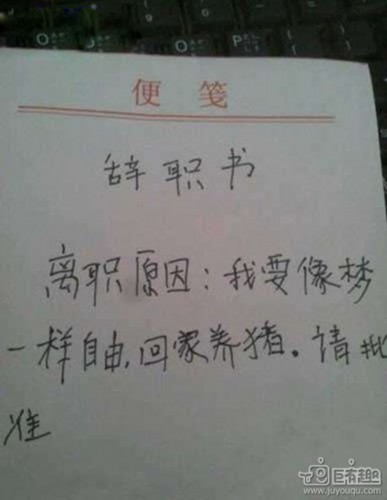 便笺
辞职书
离职原因：我要像梦
一样自由，回家养猪。请批
准
巨有趣
www.juyouqu.com